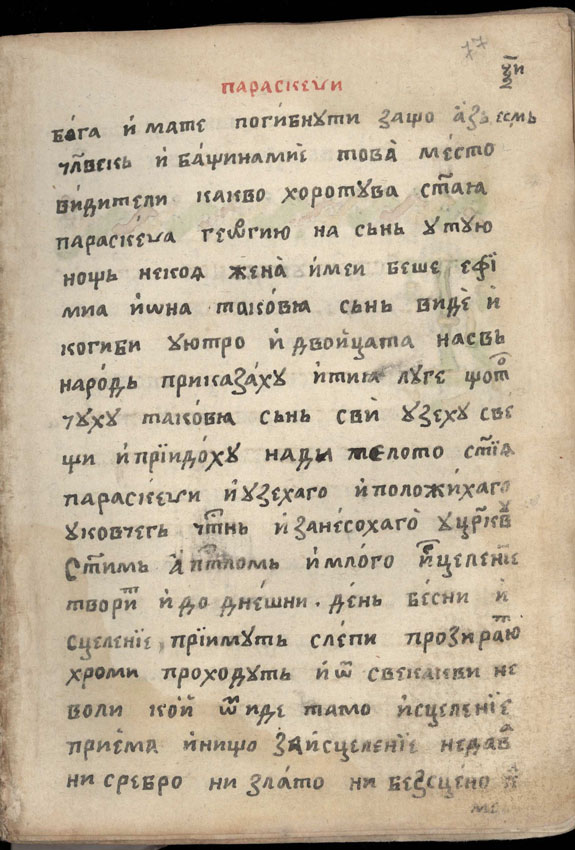 77
ѯ҃и
параскеѵи
бога и мате погибнути защо азь есмь
чл҃векь и башинамие това место
видители какво хоротува ст҃аꙗ
параскеѵа геѡргию на сьнь утую
нощь некоꙗ жена имеи беше ефї
миа иѡна таковꙗ сьнь виде и
когиби уютро и двоицата насвь
народь приказаху итиꙗ луге щот
чуху таковꙗ сьнь сви узеху све
щи и прїидоху надь телото ст҃їꙗ
параскеѵи и узехаго иположихаго
уковчегь чтⷭ҇нь и занесохаго уцр҃кв
стимь апⷭ҇тломь имлого исцеленїе
твори и до днешни день бесни и
сцеленїе приимуть слепи прозираю
хроми проходуть и ѿ свекакви не
воли кои ѿиде тамо исцеленїе
приема инищо за исцеленїе недав
ни сребро ни злато ни безсцено